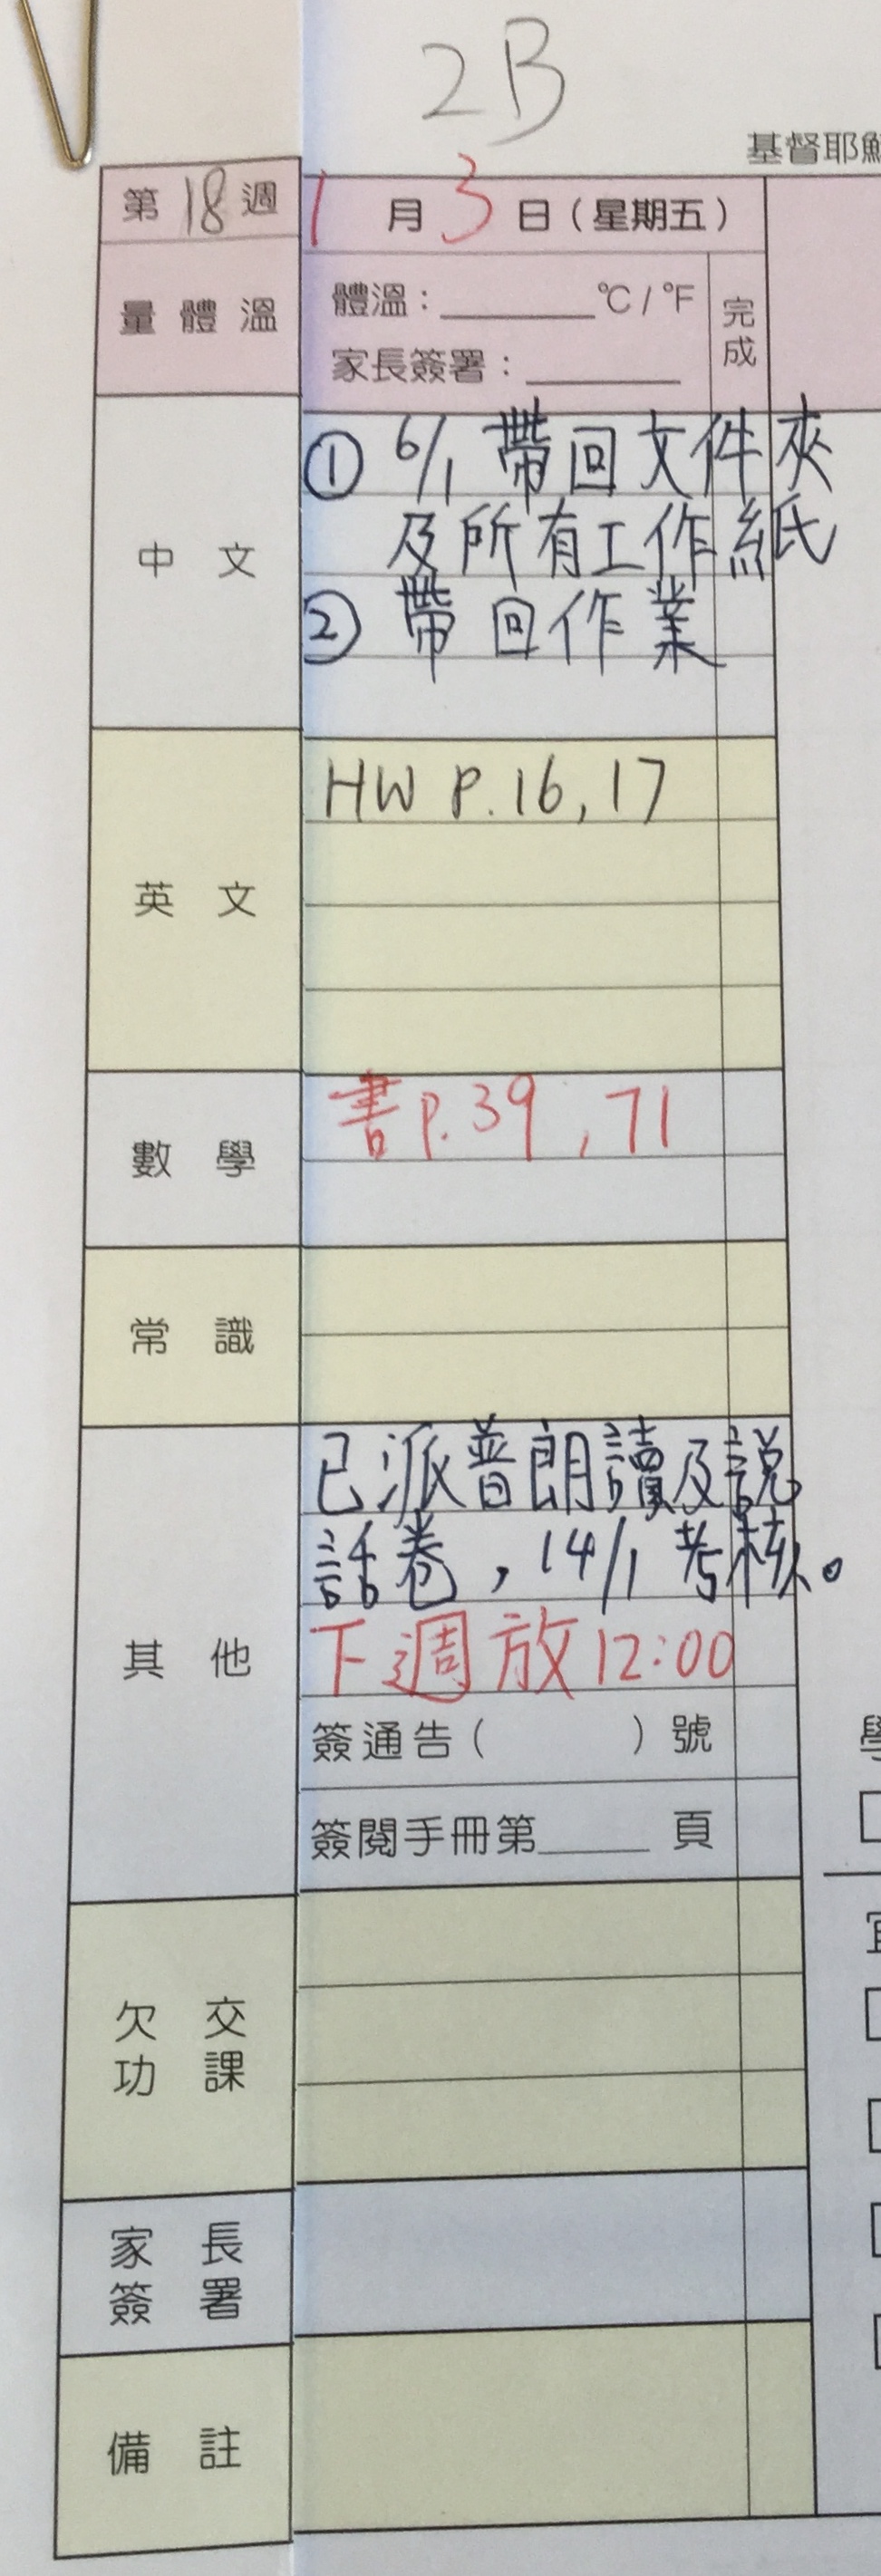 2B
基督耶穌
第18週
1月3日(星期五)
量體溫
體溫：______°C/°F
家長簽署：______
完成
中文
① 6/1 帶回文件夾
及所有工作紙
② 帶回作業
英文
HW P.16,17
數學
書P.39,71
常識
其他
已派普朗讀及說
話卷，14/1考核。
下週放12:00
簽通告( )號
簽閱手冊第____頁
欠交
功課
家長
簽署
備註